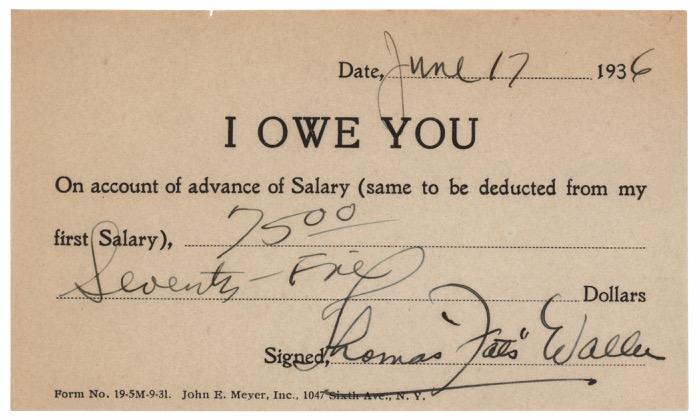 Date, June 17 1936
I OWE YOU
On account of advance of Salary (same to be deducted from my
first Salary), 75 00
Seventy-Five Dollars
Signed, Thomas "Fats" Waller
Form No. 19-5M-9-31. John E. Meyer, Inc., 1047 Sixth Ave., N. Y.